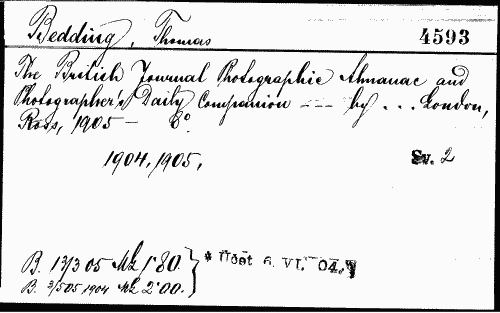 Bedding, Thomas 4593
The British Journal Photographic Almanac and
Photographer's Daily Companion --- by ... London,
Ross, 1905 — 8°.
1904, 1905, Sv. 2
B. 13/3 05 Mk 1·80.
* Účet 6. VI. 04.
B. 3/5 05 1904 Mk 2·00.